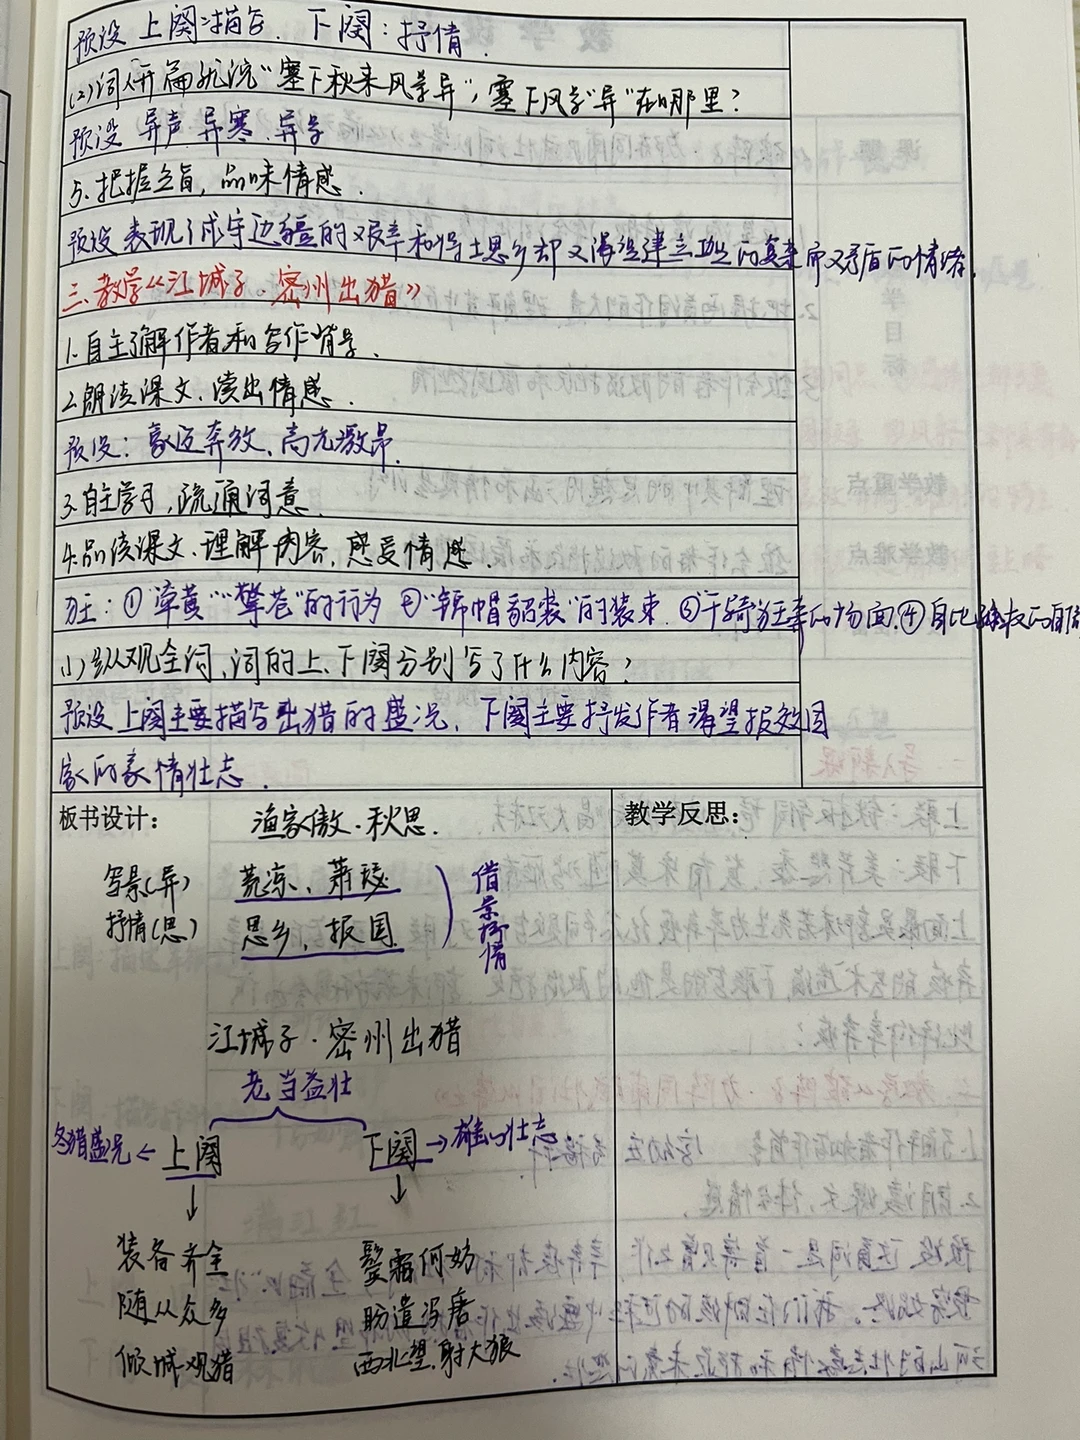 预设 上阕：描写. 下阕：抒情.
(2)词人开篇就说"塞下秋来风景异"，塞下风景"异"在哪里？
预设 异声 异寒 异景
5.把握主旨，品味情感.
预设 表现了戍守边疆的艰辛和将士思乡却又渴望建立功业的复杂而又矛盾的情绪.
三.教学《江城子·密州出猎》
1.自主了解作者和写作背景.
2.朗读课文.读出情感.
预设：豪迈奔放、高亢激昂.
3.自主学习,疏通词意.
4.品读课文.理解内容,感受情感.
狂：①"牵黄""擎苍"的行为 ②"锦帽貂裘"的装束.③千骑狂奔的场面④自比孙权的自信
(1)纵观全词,词的上、下阕分别写了什么内容？
预设 上阕主要描写出猎的盛况，下阕主要抒发作者渴望报效国
家的豪情壮志.
板书设计：
渔家傲·秋思.
写景(异) 荒凉、萧瑟
抒情(思) 思乡、报国
借景抒情
江城子·密州出猎
老当益壮
冬猎盛况←上阕 下阕→雄心壮志
↓ ↓
装备齐全 鬓霜何妨
随从众多 盼遣冯唐
倾城观猎 西北望.射大狼
教学反思：